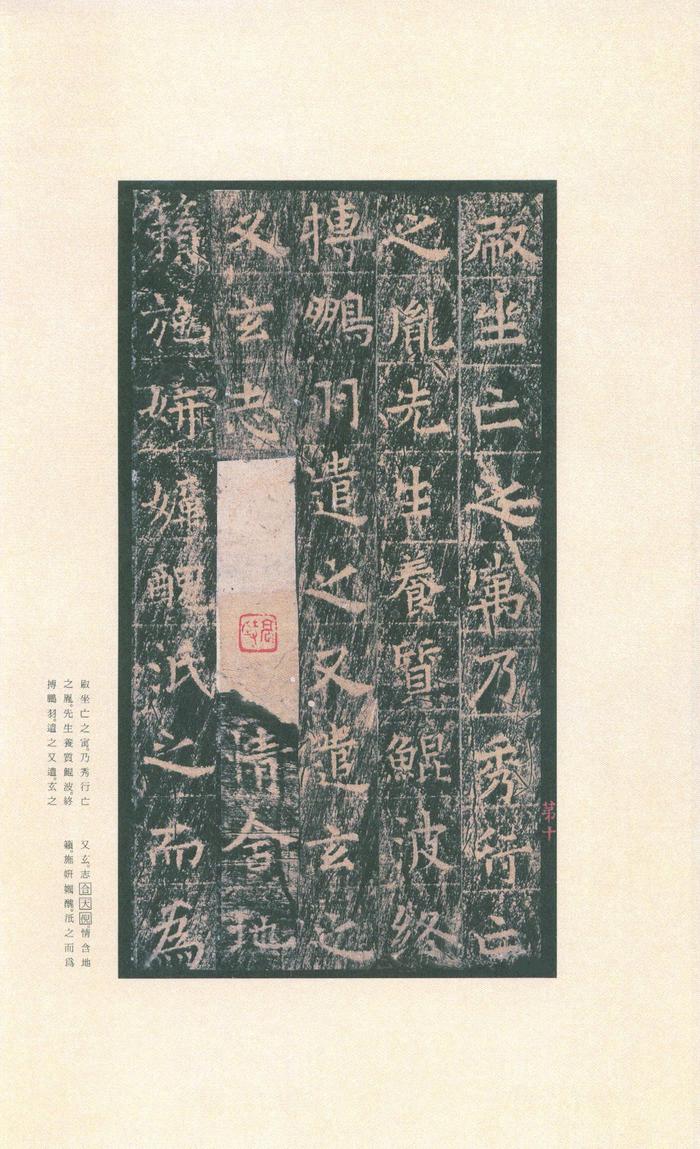 坐亡之寓乃秀行亡
之胤先生養質鯤波終
搏鵬羽遣之又遣玄之
又玄志
情含地
籟施妍醜泯之而為
第十
坐亡之寓。乃秀行亡
之胤。先生養質鯤波。終
搏鵬羽。遣之又遣。玄之
又玄。志合天倪。情含地
籟。施妍醜。泯之而爲